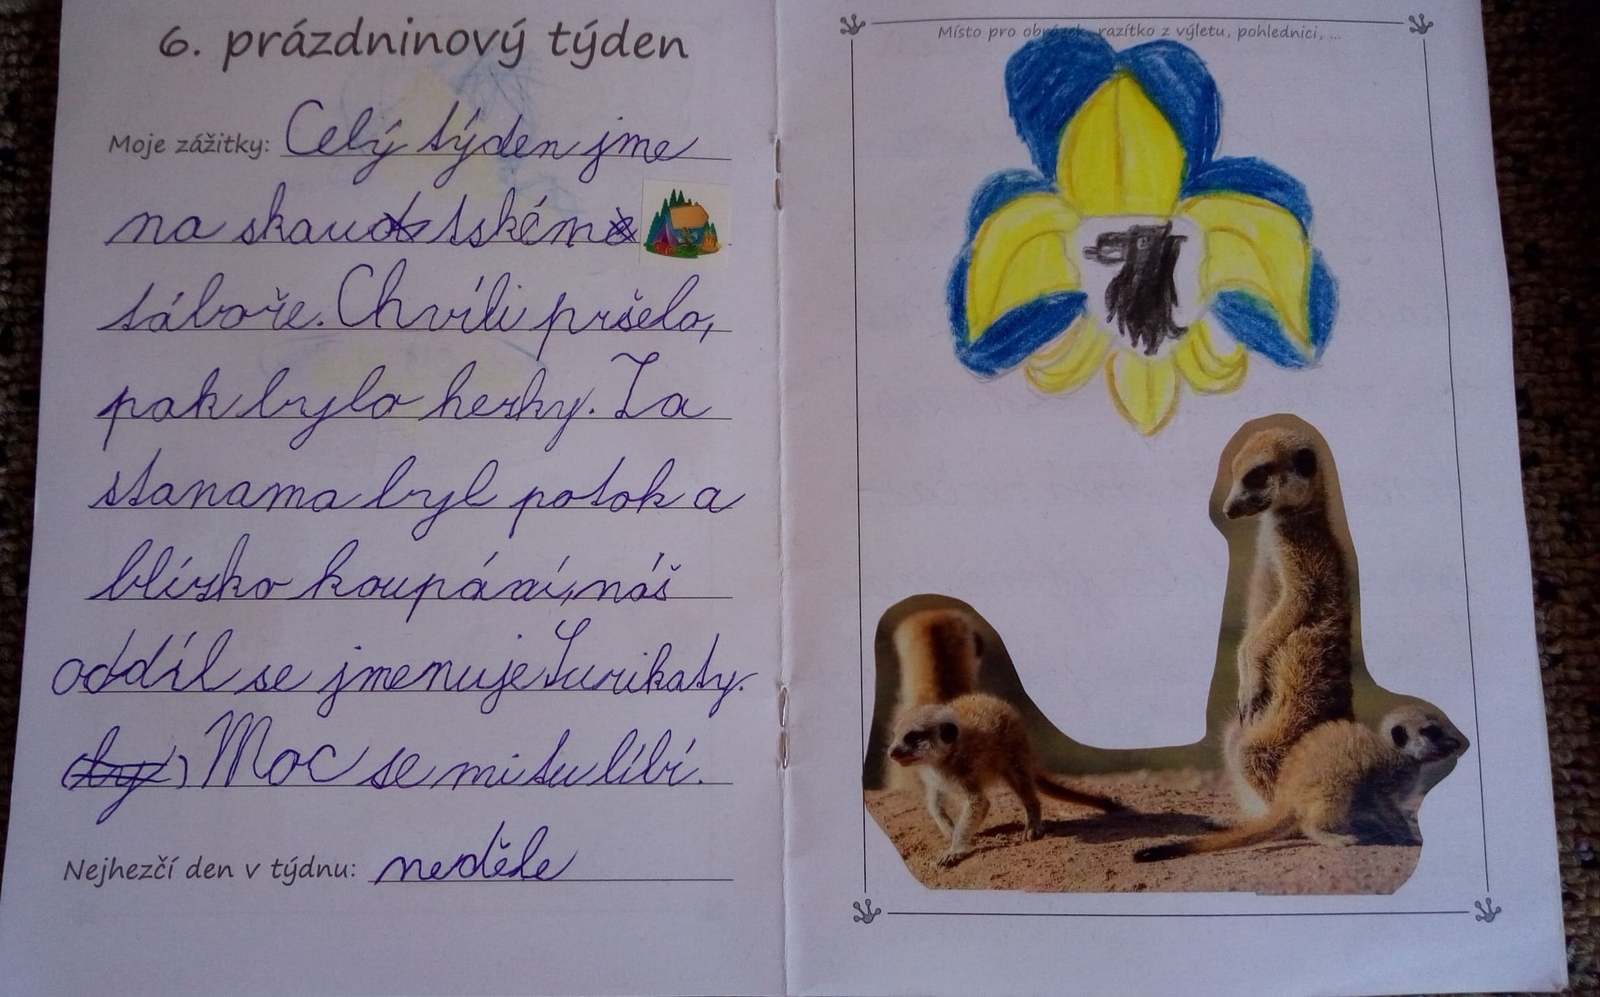 6. prázdninový týden
Moje zážitky: Celý týden jme
na skautském
táboře. Chvíli pršelo,
pak bylo hezky. Za
stanama byl potok a
blízko koupání, náš
oddíl se jmenuje Surikaty.
(by) Moc se mi tu líbí.
Nejhezčí den v týdnu: neděle
Místo pro obrázek, razítko z výletu, pohlednici, ...